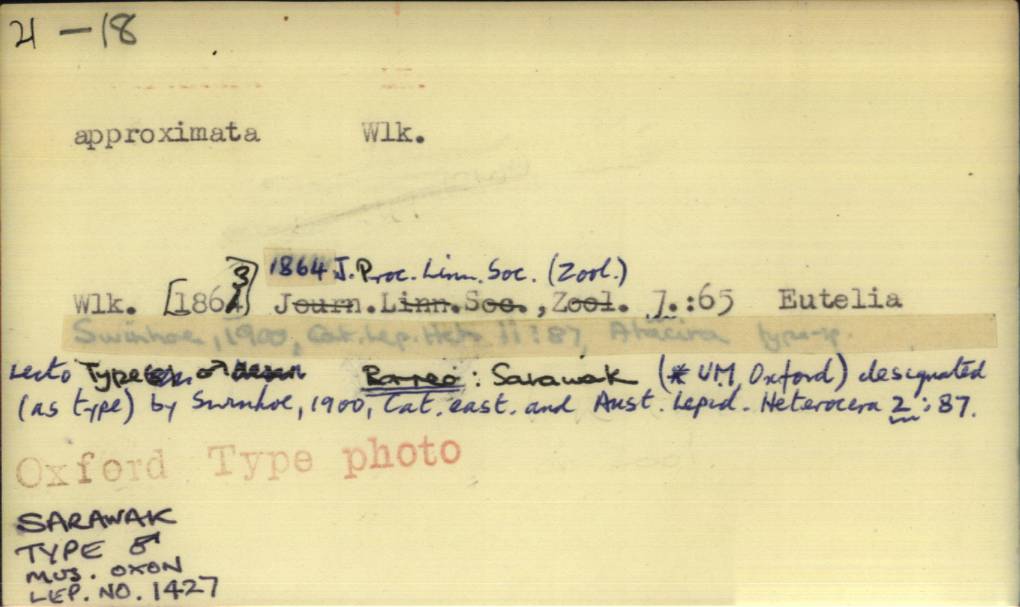 21 - 18
approximata Wlk.
1864 J. Proc. Linn. Soc. (Zool.)
Wlk. [1863] Journ. Linn. Soc., Zool. 7.:65 Eutelia
Swinhoe, 1900, Cat. Lep. Het. II: 87, Atacira type-sp.
Lecto Type ♂ Borneo: Sarawak (* UM, Oxford) designated
(as type) by Swinhoe, 1900, Cat. east. and Aust. Lepid. Heterocera 2: 87.
Oxford Type photo
SARAWAK
TYPE ♂
MUS. OXON
LEP. NO. 1427